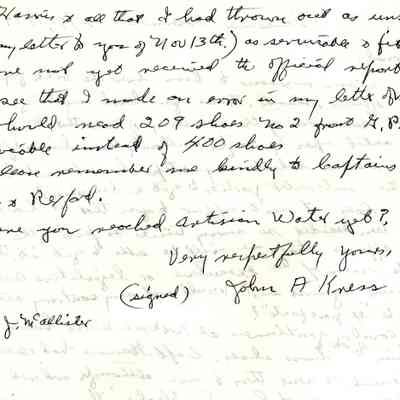 Harris & all that I had thrown out as uns
my letter to you of Nov 13th.) as serviceable & fit
not yet received the official report
see that I made an error in my letter of
should read 209 shoes No 2 front G. P.
viceable instead of 400 shoes
lease remember me kindly to Captains
& Rexford.
you reached Artesian Water yet?,
Very respectfully Yours,
(signed) John A Kress
J. McAllister